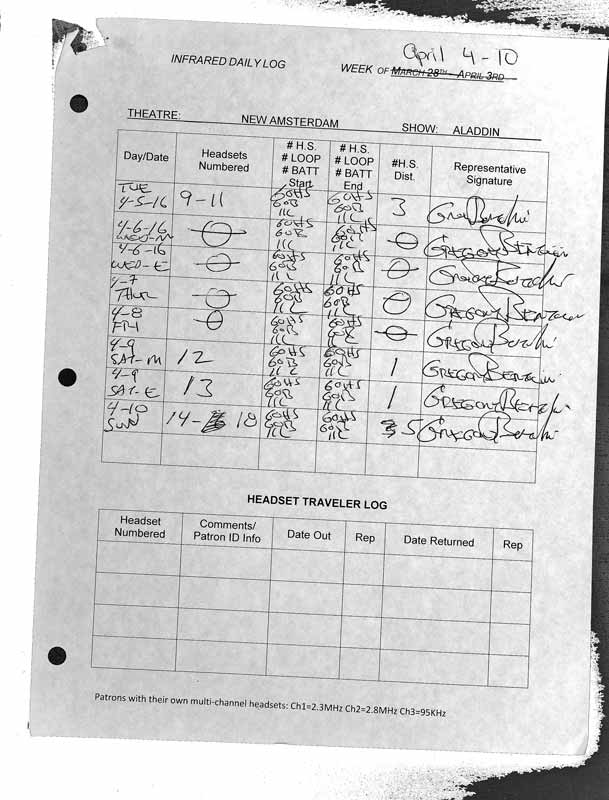 April 4-10
INFRARED DAILY LOG WEEK OF MARCH 28TH - APRIL 3RD
THEATRE: NEW AMSTERDAM SHOW: ALADDIN
Day/Date Headsets Numbered # H.S. # LOOP # BATT Start # H.S. # LOOP # BATT End #H.S. Dist. Representative Signature
TUE 4-5-16 9-11 60HS 60B 11L 60HS 60B 11L 3
4-6-16 WED-M 0 60HS 60B 11L 60HS 60B 11L 0 GREGORY
4-6-16 WED-E 0 60HS 60B 11L 60HS 60B 11L 0 GREGORY
4-7 THUR 0 60HS 60B 11L 60HS 60B 11L 0 GREGORY
4-8 FRI 0 60HS 60B 11L 60HS 60B 11L 0 GREGORY
4-9 SAT-M 12 60HS 60B 11L 60HS 60B 11L 1 GREGORY
4-9 SAT-E 13 60HS 60B 11L 60HS 60B 11L 1 GREGORY
4-10 SUN 14-18 60HS 60B 11L 60HS 60B 11L 5 GREGORY
HEADSET TRAVELER LOG
Headset Numbered Comments/ Patron ID Info Date Out Rep Date Returned Rep
Patrons with their own multi-channel headsets: Ch1=2.3MHz Ch2=2.8MHz Ch3=95KHz